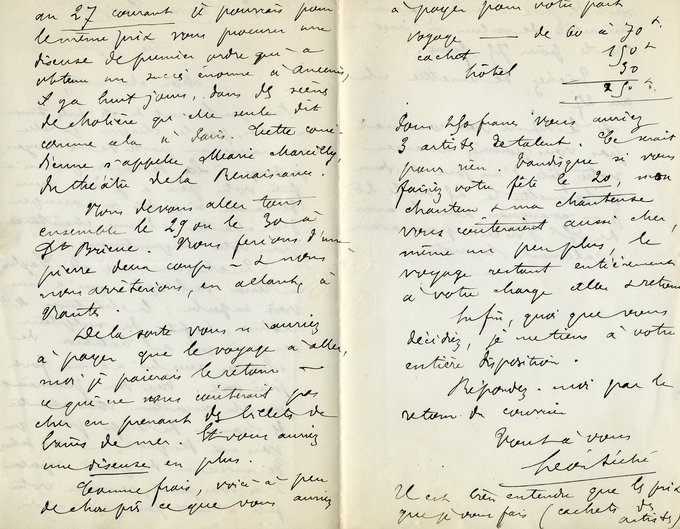 au 27 courant je pourrais pour
le même prix vous procurer une
diseuse de premier ordre qui a
obtenu un succès énorme à Ancenis,
il y a huit jours, dans des scènes
de Cholière qu'elle seule dit
comme cela à Paris. Cette comé-
dienne s'appelle Marie Marcilly,
du théâtre de la Renaissance.
Nous devons aller tous
ensemble le 29 ou le 30 à
St Brieuc. Nous ferions d'une
pierre deux coups - & nous
nous arrêterions, en allant, à
Nantes.
De la sorte vous n'auriez
à payer que le voyage à aller,
moi je paierais le retour -
ce qui ne nous coûterait pas
cher en prenant des billets de
bains de mer. Et vous auriez
une diseuse en plus.
Comme frais, voici à peu
de chose près ce que vous auriez
à payer pour votre part
voyage — de 60 à 70 f.
cachet 150 f
hôtel 30
250 f.
Pour 250 francs vous auriez
3 artistes de talent. Ce serait
pour rien. Tandis que si vous
faisiez votre fête le 20, mon
chanteur & ma chanteuse
vous coûteraient aussi cher,
même un peu plus, le
voyage restant entièrement
à votre charge aller & retour
Enfin, quoi que vous
décidiez, je me tiens à votre
entière disposition.
Répondez-moi par le
retour du courrier
Tout à vous
Léon Séché
Il est bien entendu que les prix
que je vous fais (cachets des
artistes)